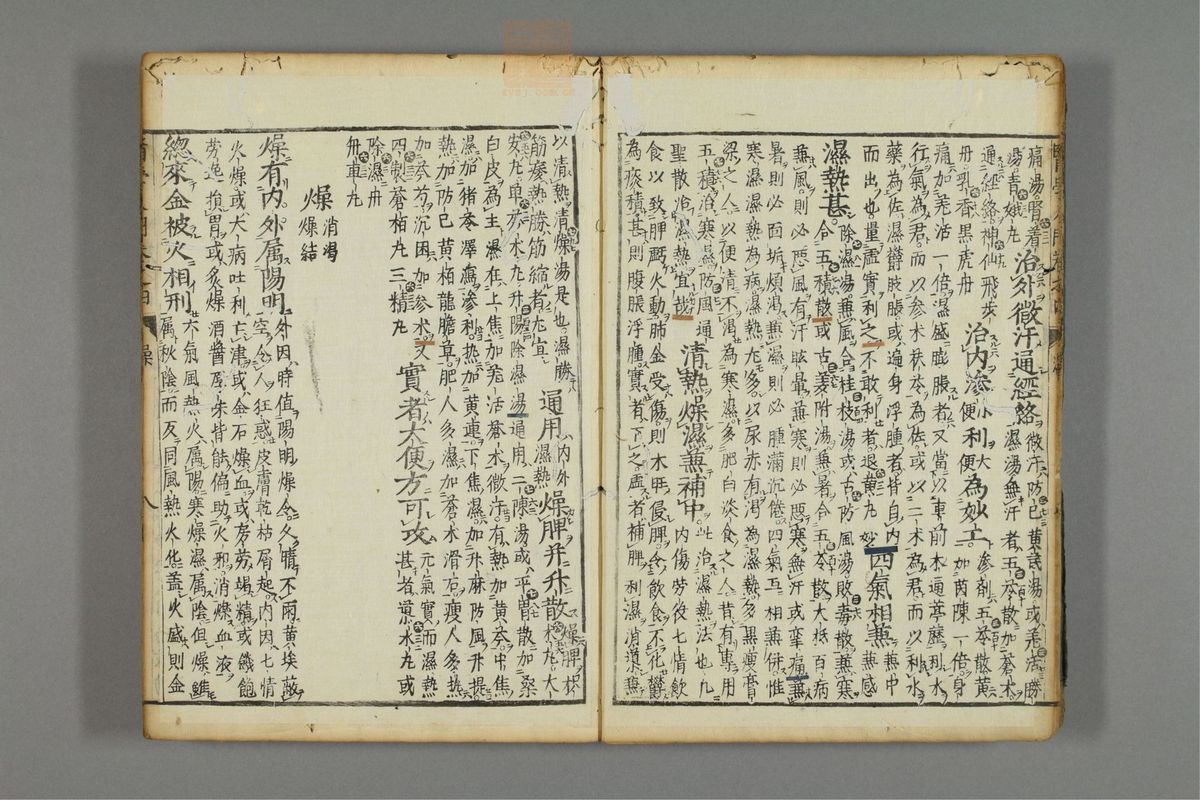 痛湯腎着治外微汗通經絡微汗防已黄芪湯或羌活勝
湯青娥丸濕湯無汗者五苓散加蒼术
通經絡神仙飛步治内滲小利大滲劑五苓散黄
丹乳香黒虎丹便利便為妙工加茵陳一倍身
痛加羌活一倍濕盛膨脹者又當以車前木通葶藶利水
行氣為君而以參术茯苓為佐或以二术為君而以利水
藥為佐濕欝肢脹或遍身浮腫者皆自内
而出也量虚實利之不敢利者退黄丸妙四氣相兼兼中
兼風則必惡風有汗眩暈兼寒則必惡寒無汗或攣痛兼
濕熱甚合五積散或古羗附湯兼暑合五苓散大抵百病
暑則必面垢煩渴兼濕則必腫滿沉倦四氣互相兼併惟
寒濕濕熱為病濕熱尤多以尿赤有渴為濕熱多黒痩膏
梁之人以便清不渴為寒濕多肥白淡食之人昔有專用
五積治寒濕防風通清熱燥濕兼補中此治濕熱法也凡
聖散治濕熱宜哉内傷勞役七情飲
食以致脾虧火動肺金受傷則木旺侵脾令飲食不化欝
為痰積甚則腹脹浮腫實者下之虚者補脾利濕消導兼
以清熱清燥湯是也濕勝通用内外燥脾升散燥脾
筋痿熱勝筋縮者尤宜濕熱
安丸單蒼术丸升陽除濕湯通用二陳湯或平胃散加桑
白皮為主濕在上焦加羌活蒼术微汗有熱加黄芩中焦
濕加猪苓澤瀉滲利熱加黄連下焦濕加升麻防風升提
熱加防已黄栢龍膽草肥人多濕加蒼术滑石瘦人多熱
加芩芍沉困加參术又實者大便方可攻元氣實而濕熱
四製蒼栢丸三精丸甚者濬水丸或
除濕丹
舟車丸
燥消渴
燥結
燥有内外属陽明外因時值陽明燥令久晴不雨黄埃蔽
空令人狂惑皮膚乾枯屑起内因七情
火燥或大病吐利亡津或金石燥血或房勞竭精或饑飽
勞逸損胃或炙煿酒醬厚味皆能偏助火邪消爍血液
總來金被火相刑六氣風熱火属陽寒燥濕属陰但燥雖
属秋陰而反同風熱火化盖火盛則金